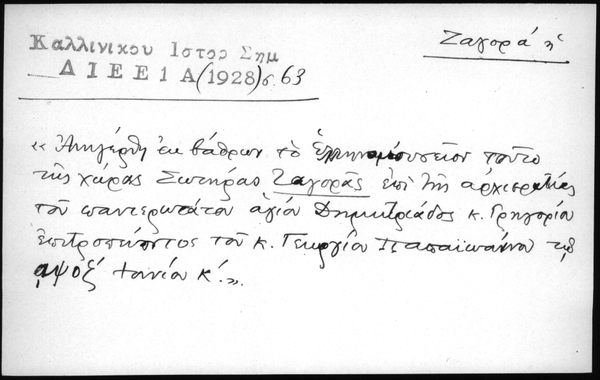 Ζαγορά ἡ
Καλλινίκου Ιστορ Σημ
ΔΙΕΕ 1 Α (1928) σ. 63
« Ἀνηγέρθη ἐκ βάθρων τὸ τοῦτο
τῆς χώρας Σωτῆρας Ζαγορᾶς ἐπὶ τῆς ἀρχιερατείας
τοῦ πανιερωτάτου ἁγίου Δημητριάδος κ. Γρηγορίου
ἐπιτροπεύοντος τοῦ κ. Γεωργίου Παπαϊωάννου τῷ
αψοξ´ Ἰουνίου κ´.».